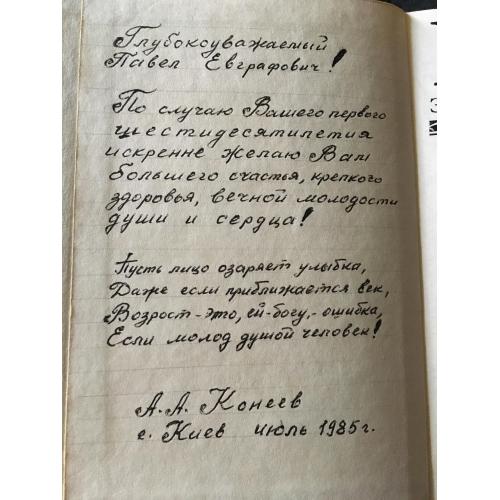 Глубокоуважаемый
Павел Евграфович!
По случаю Вашего первого
шестидесятилетия
искренне желаю Вам
большего счастья, крепкого
здоровья, вечной молодости
души и сердца!
Пусть лицо озаряет улыбка,
Даже если приближается век,
Возраст - это, ей-богу, - ошибка,
Если молод душой человек!
А. А. Конеев
г. Киев июль 1985 г.